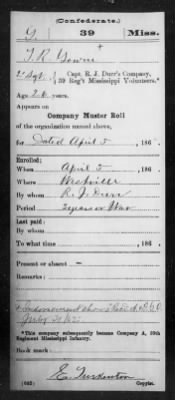 (Confederate.)
Y. 39 Miss.
T. R. Yowne
2d Sgt., Capt. R. J. Durr's Company,
39 Reg't Mississippi Volunteers.*
Age 26 years.
Appears on
Company Muster Roll
of the organization named above,
for Dated April 5, 186
Enrolled:
When April 5, 186
Where Westville
By whom R. J. Durr
Period 3 years or War
Last paid:
By whom
To what time , 186
Present or absent —
Remarks:
*This company subsequently became Company A, 39th
Regiment Mississippi Infantry.
Book mark:
E. Turkenton
(642) Copyist.